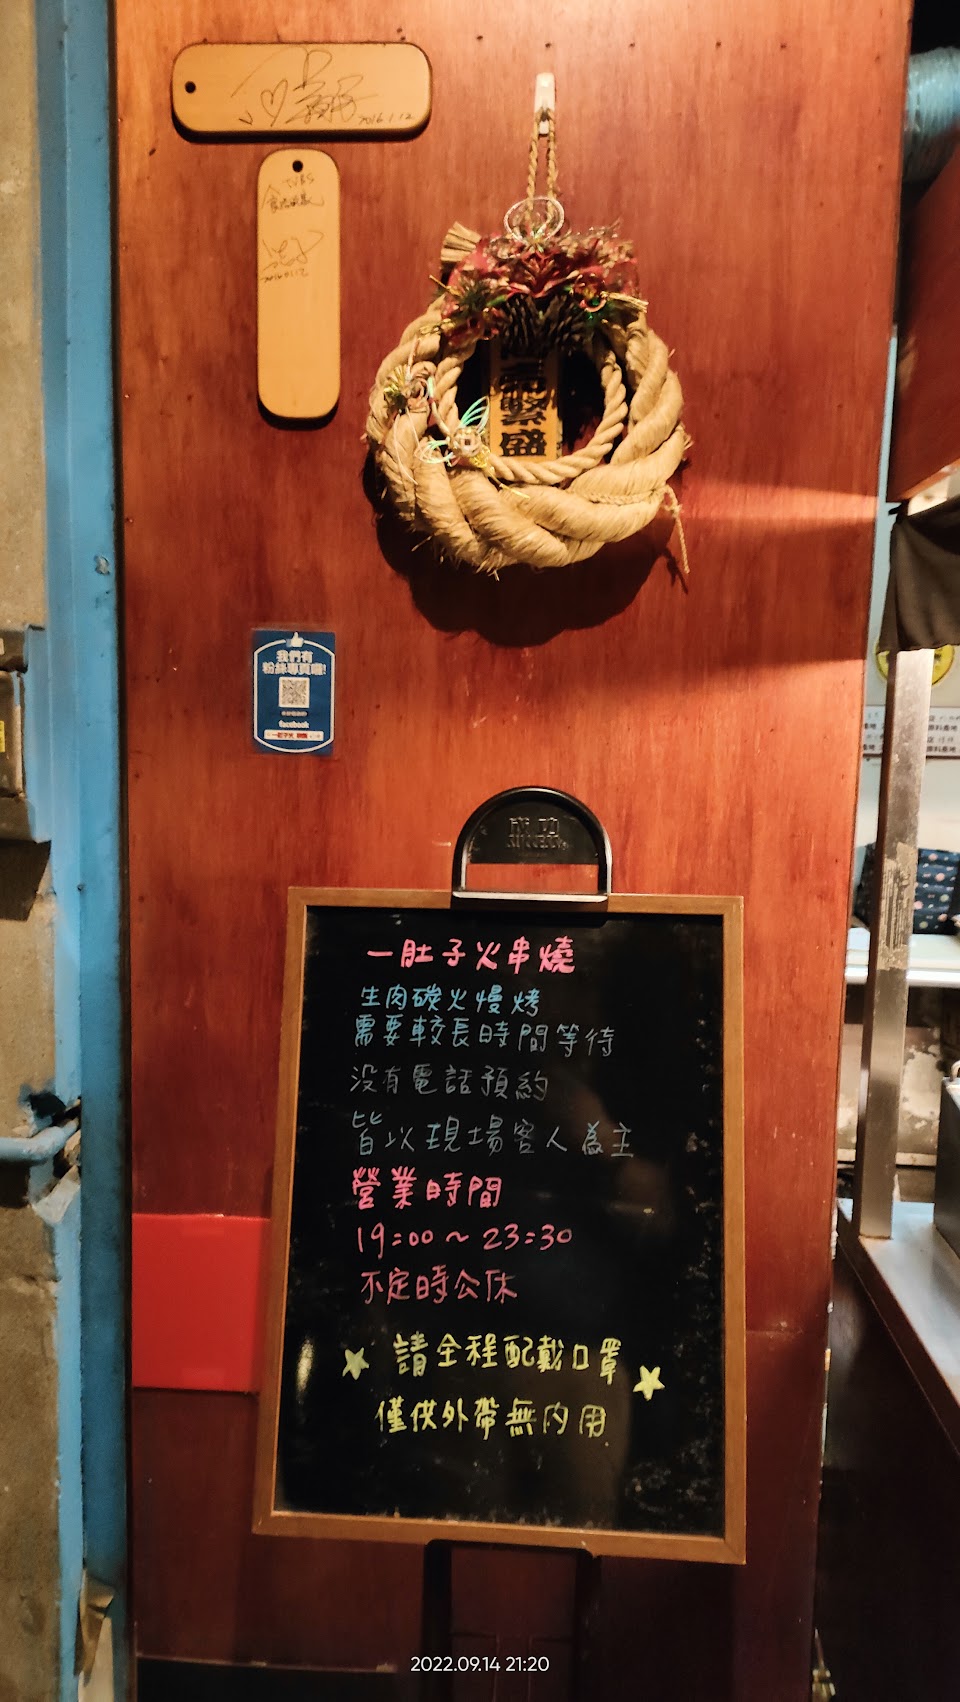 2016.1.12
TVBS
繁盛
我們有
粉絲專頁喔!
facebook
成功
SUCCESS
一肚子火串燒
生肉碳火慢烤
需要較長時間等待
沒有電話預約
皆以現場客人為主
營業時間
19:00～23:30
不定時公休
請全程配戴口罩
僅供外帶無內用
2022.09.14 21:20